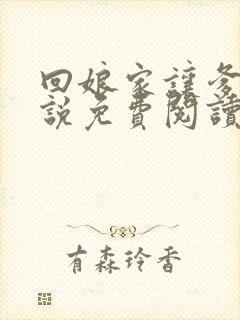 回娘家讓爹
説免費閱讀
有森玲香